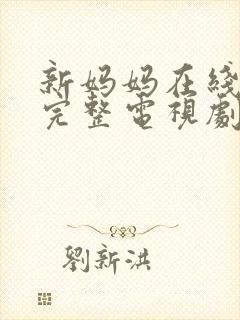 新妈妈在线
完整電視劇
劉新洪